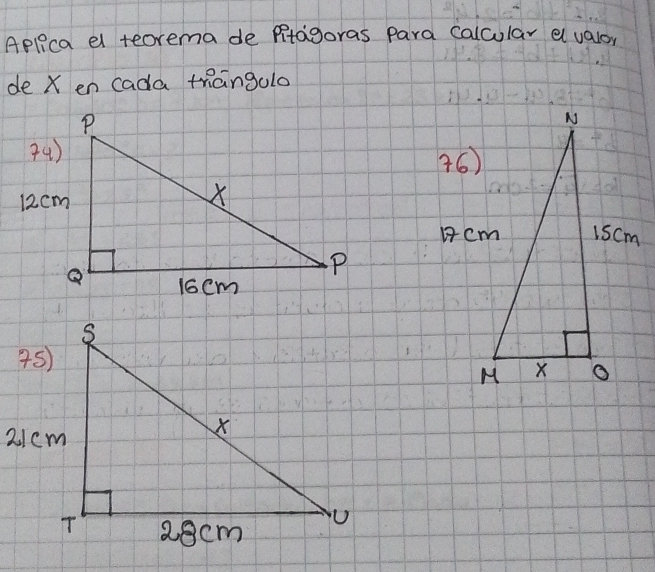 Aplica el teorema de Pitágoras para calcular el valor
de X en cada triángulo
74)
P
12cm
X
Q
16cm
P
76)
N
17cm
15cm
M
X
O
75)
S
21cm
X
T
28cm
U